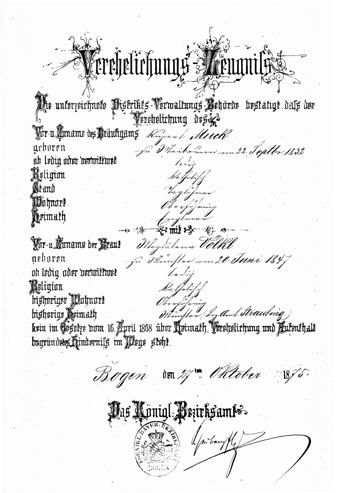 Verehelichungs-Zeugniß
Die unterzeichnete Distrikts-Verwaltungs-Behörde bestätigt, daß der
Verehelichung des
Vor- u. Zuname des Bräutigams Rupert Muck
geboren zu am 22 Septbr 1832
ob ledig oder verwittwet ledig
Religion katholisch
Stand Taglöhner
Wohnort
Heimath
mit
Vor- u. Zuname der Braut Magdalena Völkl
geboren zu Münster am 20 Juni 1847
ob ledig oder verwittwet ledig
Religion katholisch
bisheriger Wohnort
bisherige Heimath Münster Straubing
kein im Gesetze vom 16. April 1868 über Heimath, Verehelichung und Aufenthalt
begründetes Hinderniß im Wege steht.
Bogen den 27ten Oktober 1875.
Das Königl. Bezirksamt
BOGEN